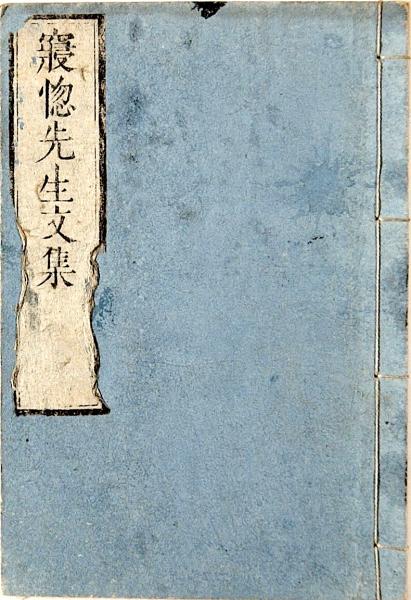 寢惚先生文集